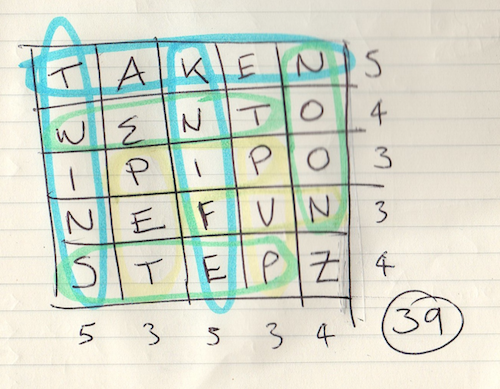 T A K E N 5
W E N T O 4
I P I P O 3
N E F U N 3
S T E P Z 4
5 3 5 3 4 39